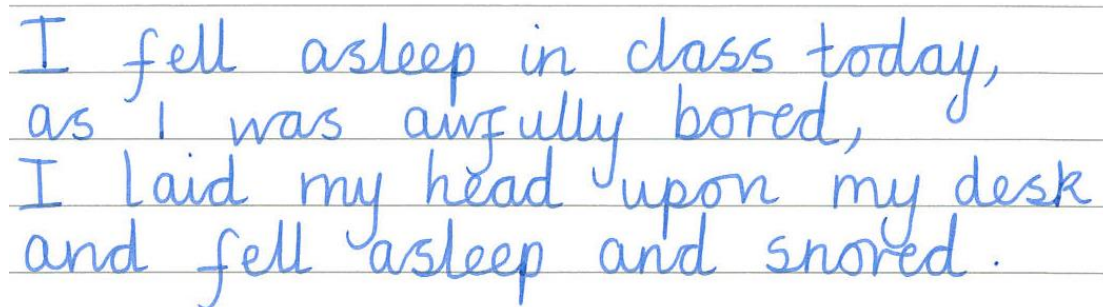 I fell asleep in class today,
as I was awfully bored,
I laid my head upon my desk
and fell asleep and snored.